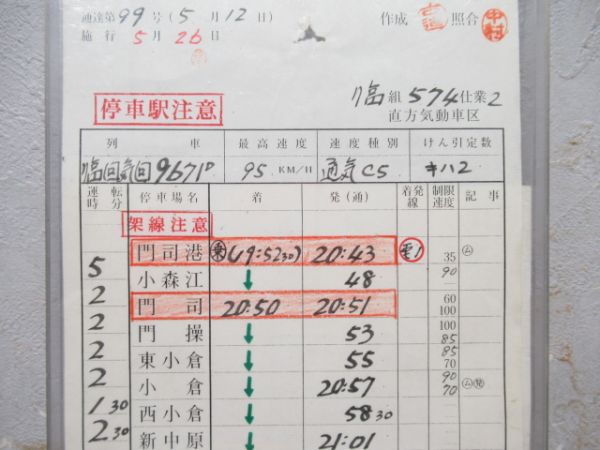 通達第99号(5月12日) 作成 照合 中村
施行5月26日
臨組574仕業2
停車駅注意
直方気動車区
列車 最高速度 速度種別 けん引定数
臨回気回9671D 95 KM/H 通気C5 キハ2
運転時分 停車場名 着 発(通) 着発線 制限速度 記事
架線注意
門司港 (19:5230) 20:43 35 ㋰
5 小森江 ↓ 48 90
2 門司 20:50 20:51 60 100
2 門操 ↓ 53 100 85
2 東小倉 ↓ 55 85 70
2 小倉 ↓ 20:57 90 70 ㋰
1 30 西小倉 ↓ 58 30
2 30 新中原 ↓ 21:01